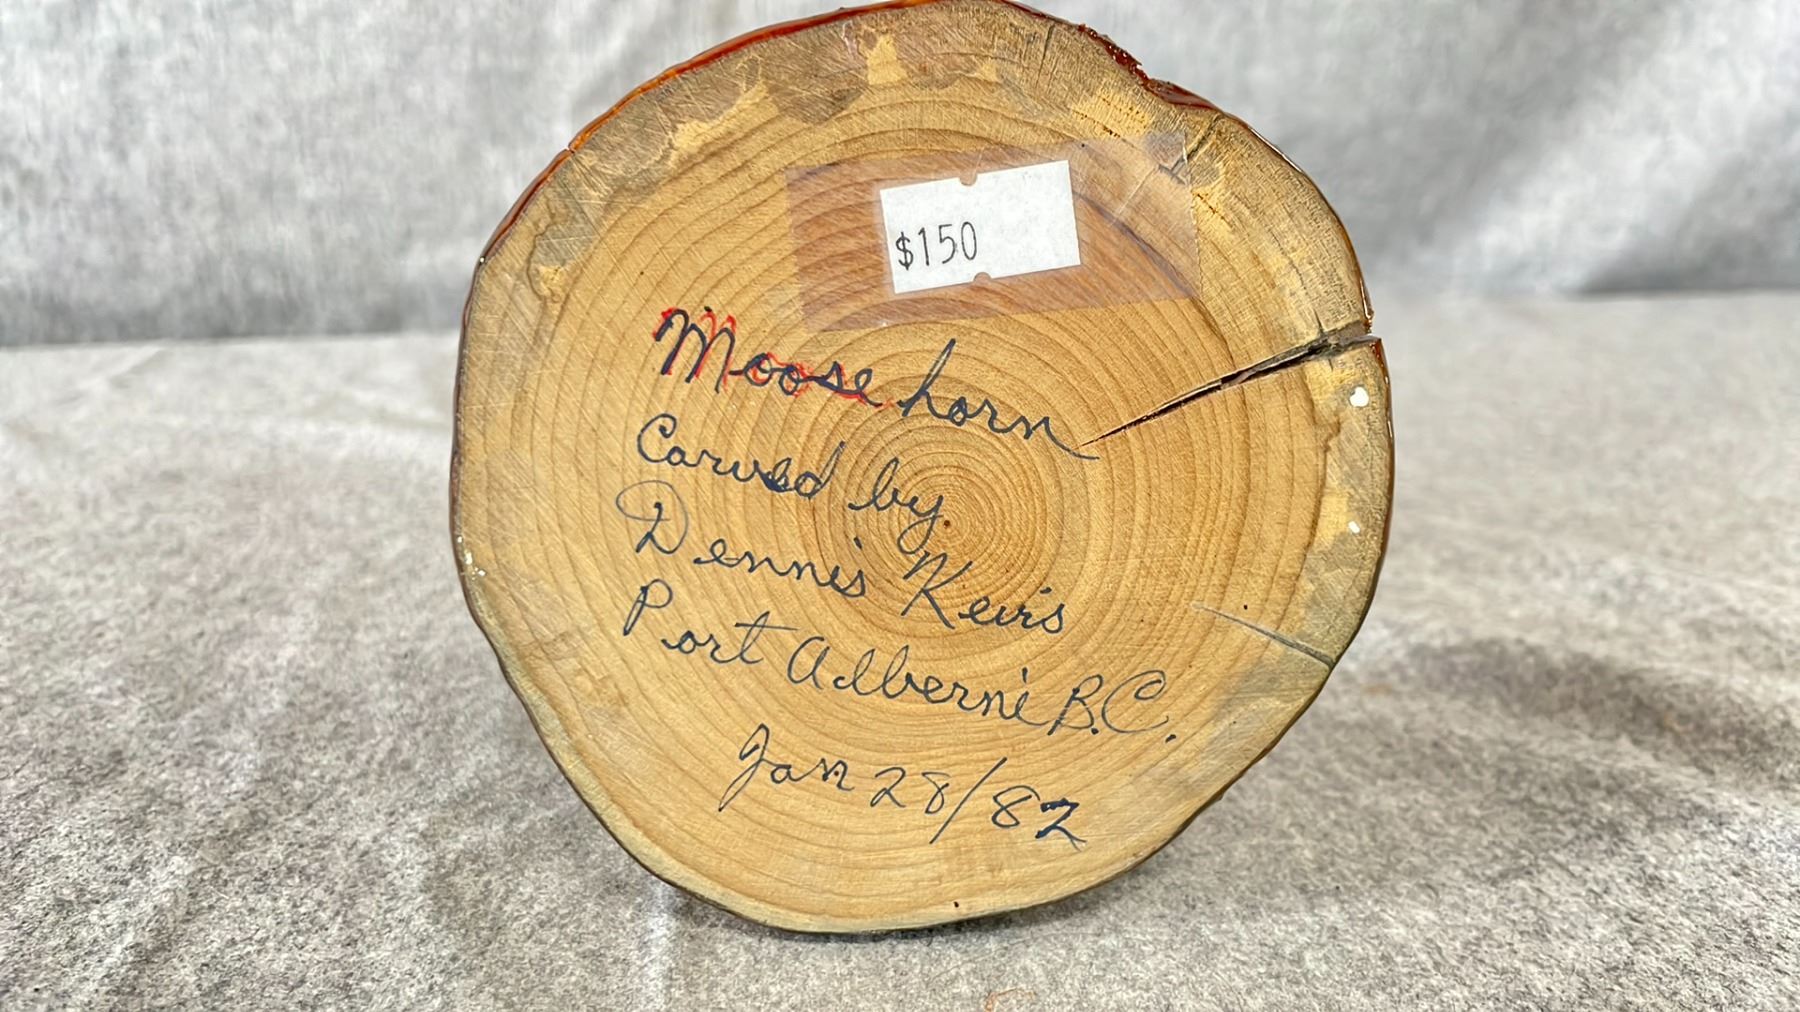 $150
Moose horn
Carved by
Dennis Keirs
Port Alberni B.C.
Jan 28/82